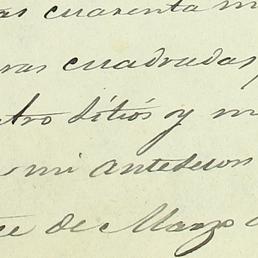 as cuarenta m
ras cuadradas
tro sitios y m
mi antecesor
te de Marzo